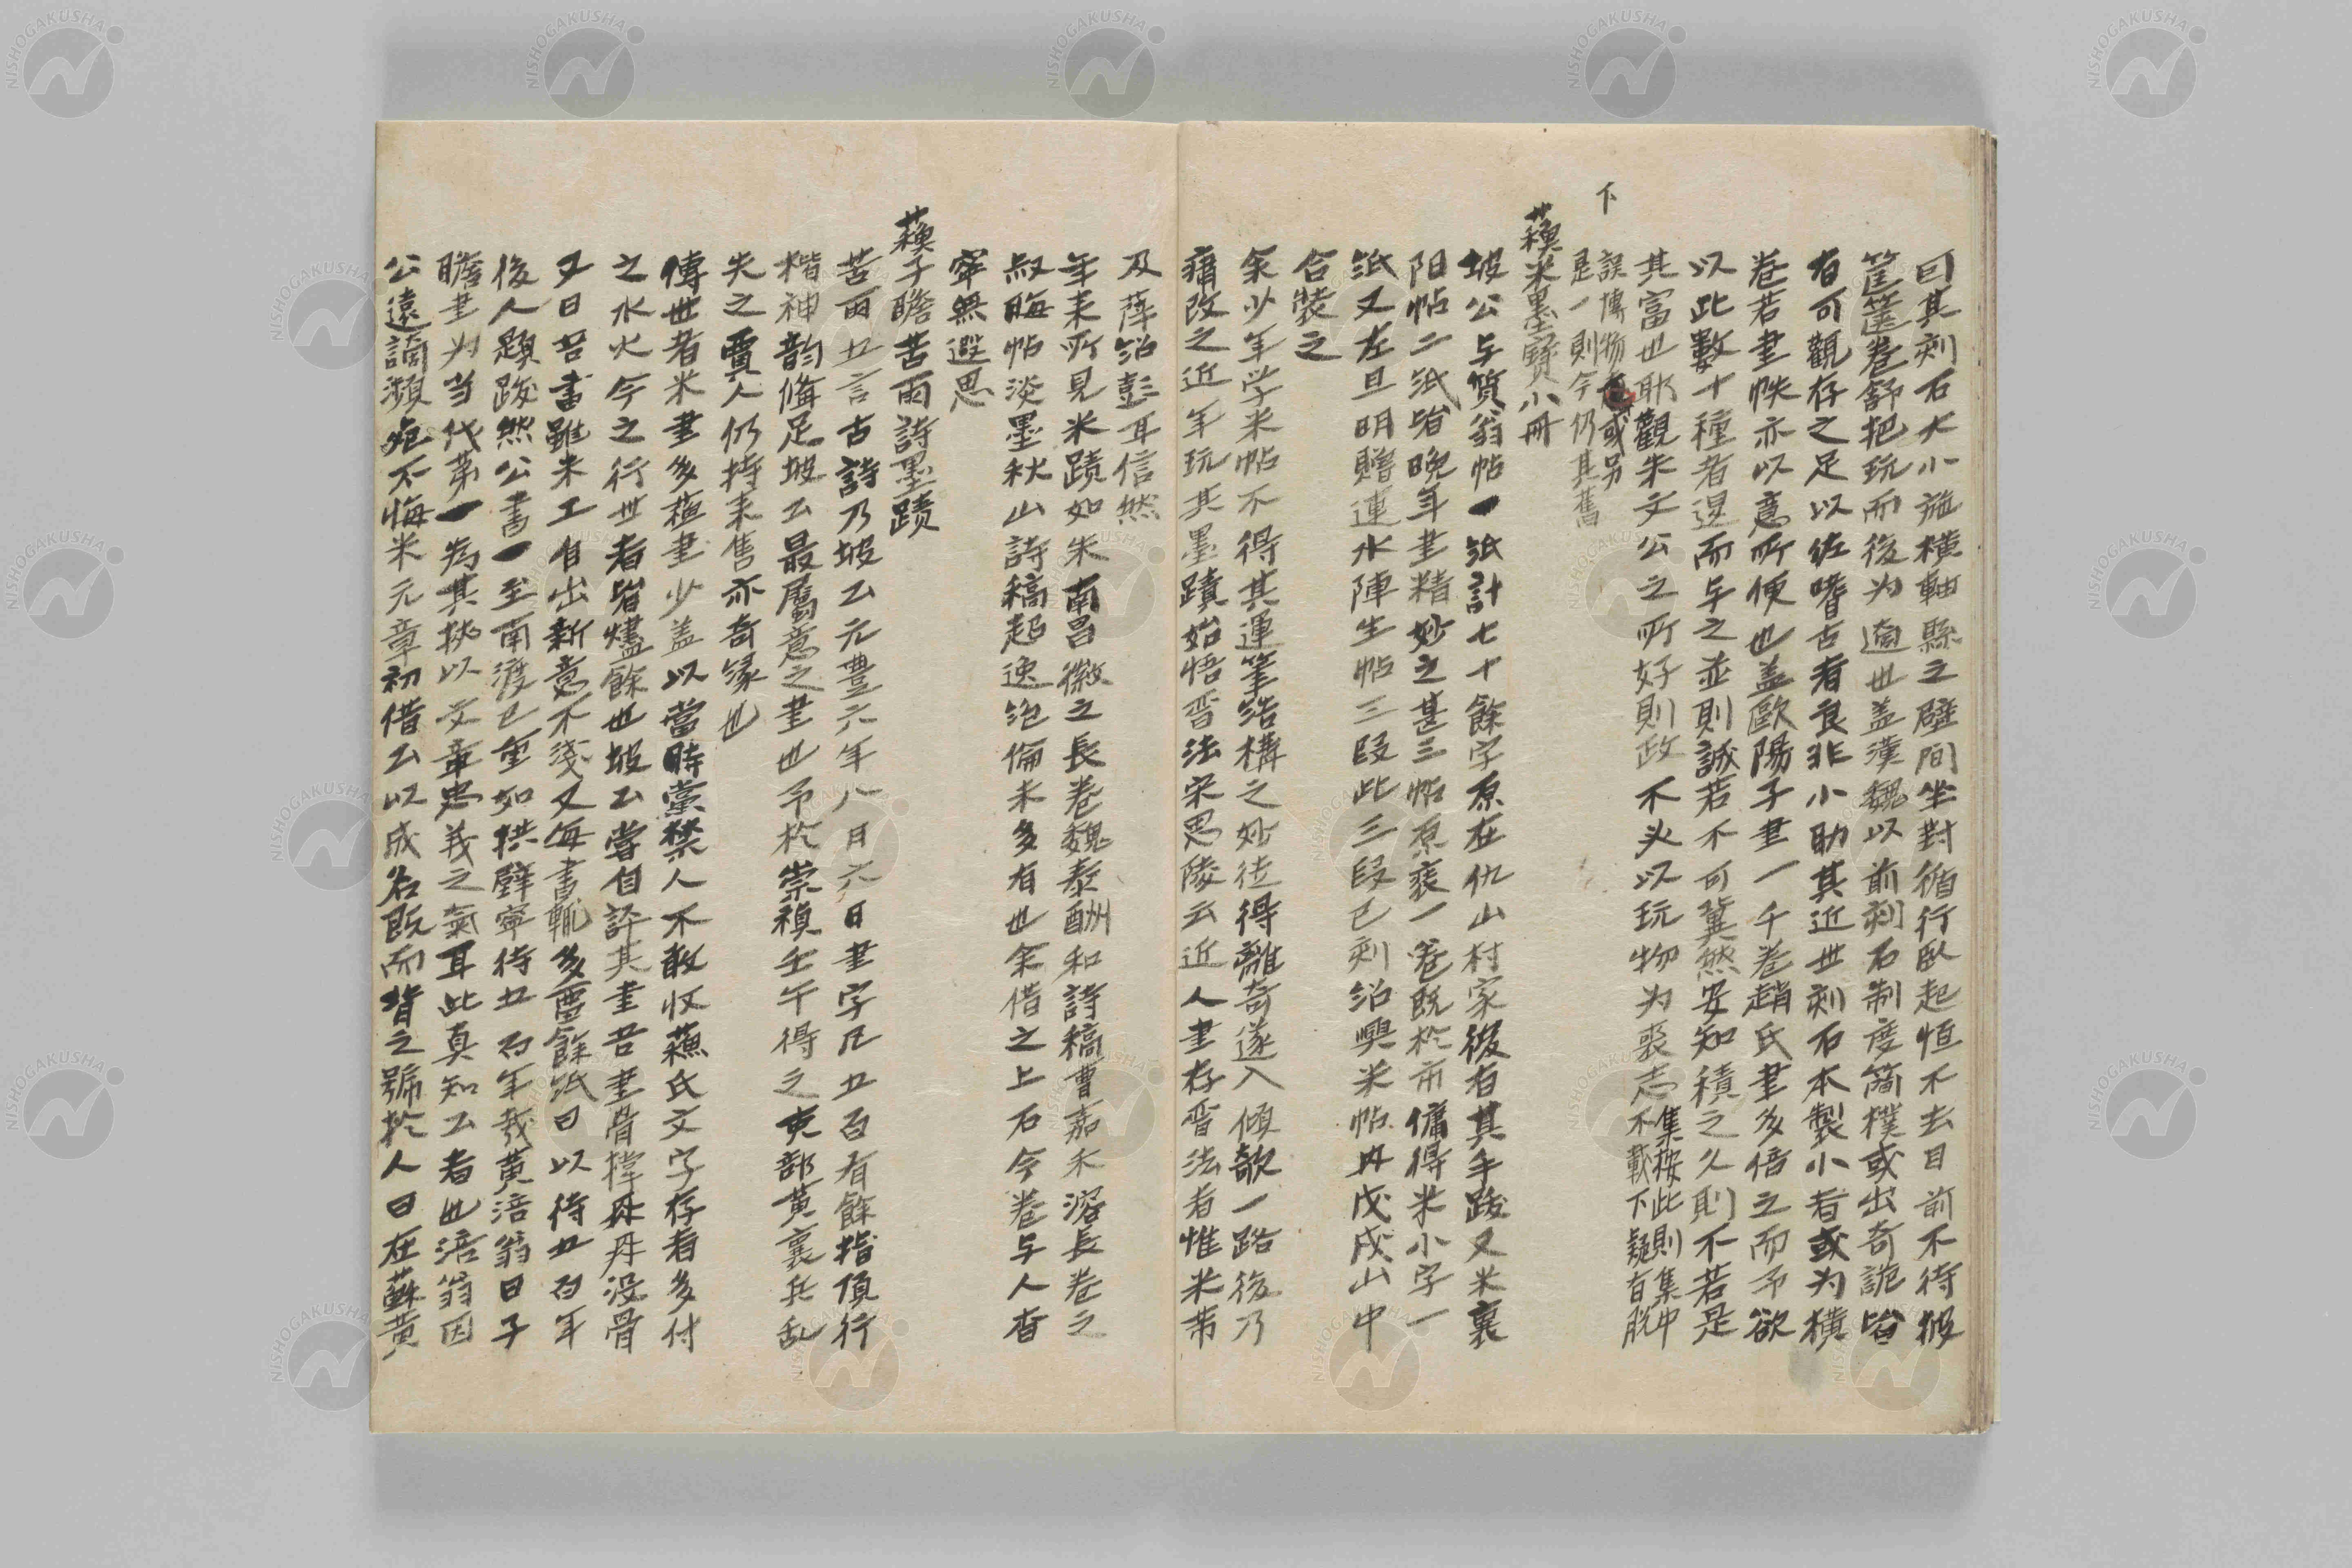 曰其刻石大小施橫軸縣之壁間坐對循行臥起恒不去目前不待披
筐篋卷舒把玩而後为適也盖漢魏以前刻石制度簡樸或出奇詭皆
有可觀存之足以佐嗜古者良非小助其近世刻石本製小者或为橫
卷若書帙亦以意所便也盖歐陽子書一千卷趙氏書多倍之而予欲
以此數十種者逞而与之並則誠若不可冀然安知積之久則不若是
其富也耶觀朱文公之所好則政不必以玩物为喪志
集按此則集中
不載下疑有脫
下
誤博物或另
是一則今仍其舊
蘓米墨寶小冊
坡公与質翁帖一紙計七十餘字原在仇山村家後有其手跋又米襄
阳帖二紙皆晚年書精妙之甚三帖原裱一卷既於市傭得米小字一
紙又左旦明贈連水陣生帖三段此三段已刻紹興米帖内戊戌山中
合裝之
余少年学米帖不得其運筆结構之妙徒得離奇遂入傾欹一路後乃
痛改之近年玩其墨蹟始悟晋法宋思陵云近人書存晋法者惟米芾
及薛紹彭耳信然
年来所見米蹟如朱南昌徽之長卷魏泰酬和詩稿曹嘉禾溶長卷之
叔晦帖淡墨秋山詩稿超逸絶倫未多有也余借之上石今卷与人杳
寧無遐思
蘓子瞻苦雨詩墨蹟
苦雨五言古詩乃坡公元豊六年八月六日書字凡五百有餘指頂行
楷神韵俻足坡公最屬意之書也予於崇禎壬午得之吏部黄襄兵乱
失之賈人仍持来售亦奇缘也
傳世者米書多蘓書少盖以當時黨禁人不敢收蘓氏文字存者多付
之水火今之行世者皆燼餘也坡公嘗自評其書吾書骨撑肉肉没骨
又曰吾書雖未工自出新意不淺又每書輒多畱餘紙曰以待五百年
後人題跋然公書一至南渡已重如拱璧寧待五百年哉黄涪翁曰子
瞻書为当代第一為其挾以文章忠義之氣耳此真知公者也涪翁因
公遠謫瀕死不悔米元章初借公以成名既而背之號於人曰在蘇黄